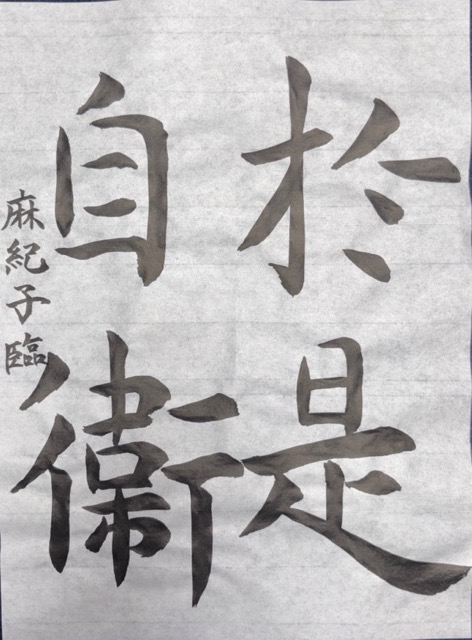 於是
自衛
麻紀子臨